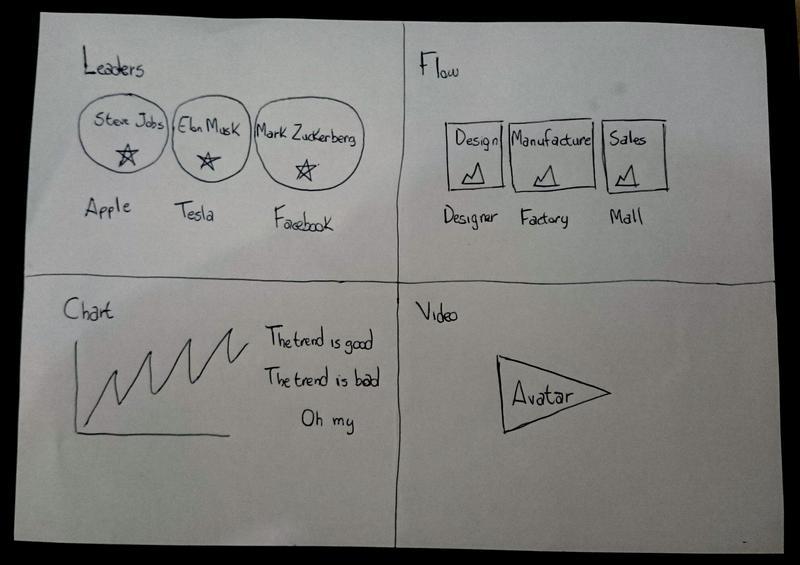 Leaders
Steve Jobs Elon Musk Mark Zuckerberg
Apple Tesla Facebook
Flow
Design Manufacture Sales
Designer Factory Mall
Chart
The trend is good
The trend is bad
Oh my
Video
Avatar